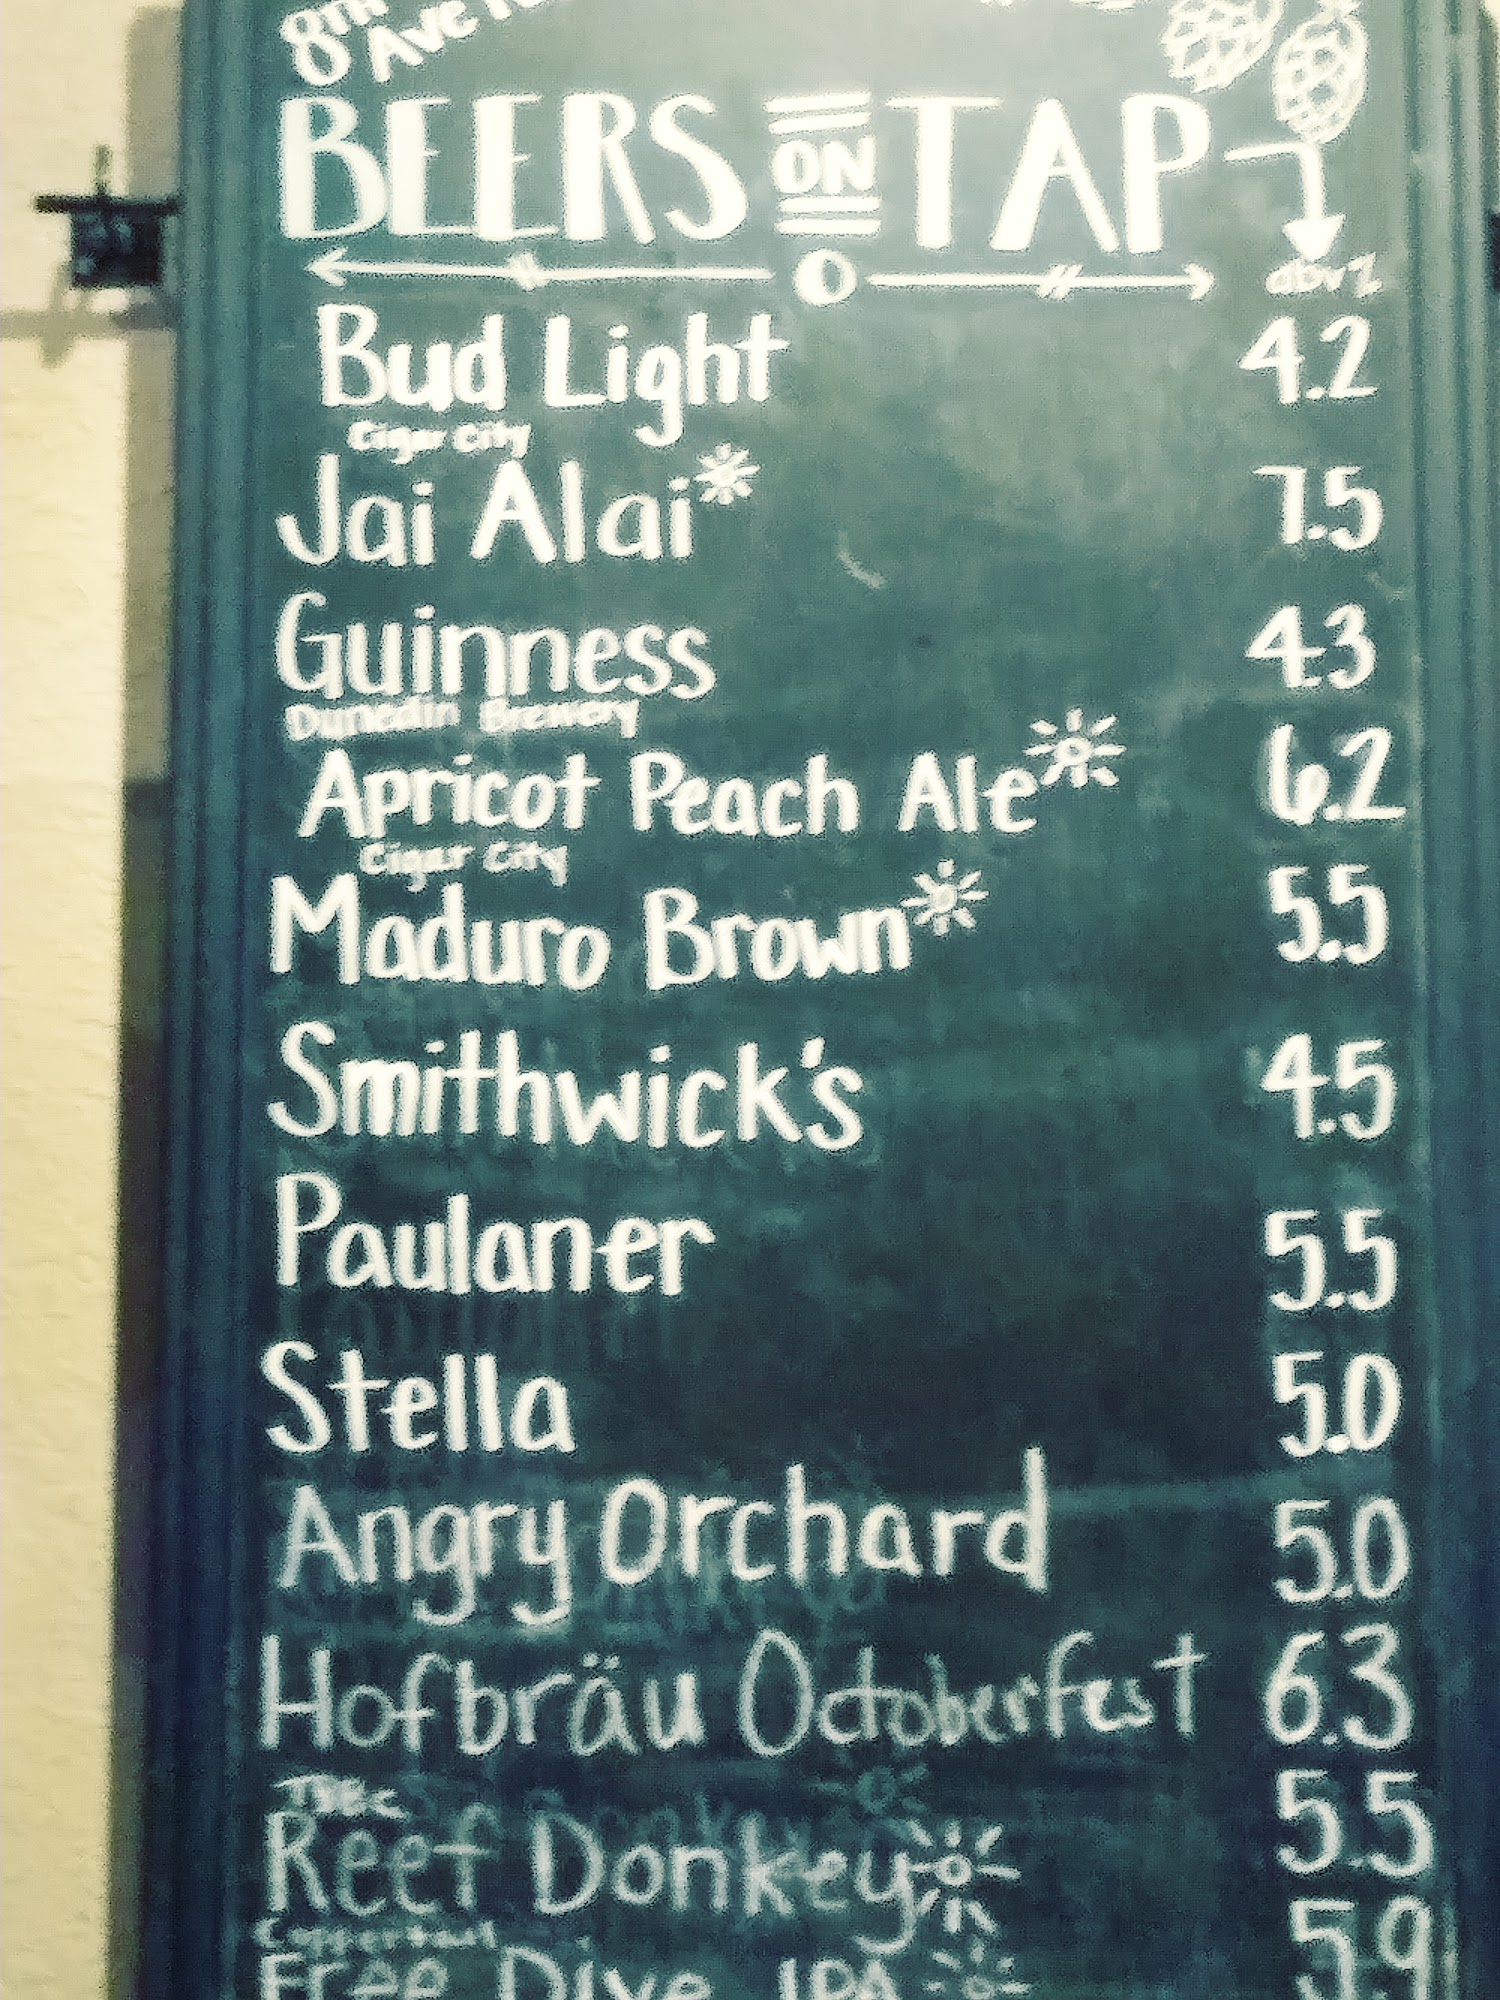 8TH
Ave
BEERS ON TAP
abv %
Bud Light 4.2
Cigar City
Jai Alai 7.5
Guinness 4.3
Dunedin Brewery
Apricot Peach Ale 6.2
Cigar City
Maduro Brown 5.5
Smithwick's 4.5
Paulaner 5.5
Stella 5.0
Angry Orchard 5.0
Hofbräu Octoberfest 6.3
TBBC
Reef Donkey 5.5
Coppertail
Free Dive IPA 5.9